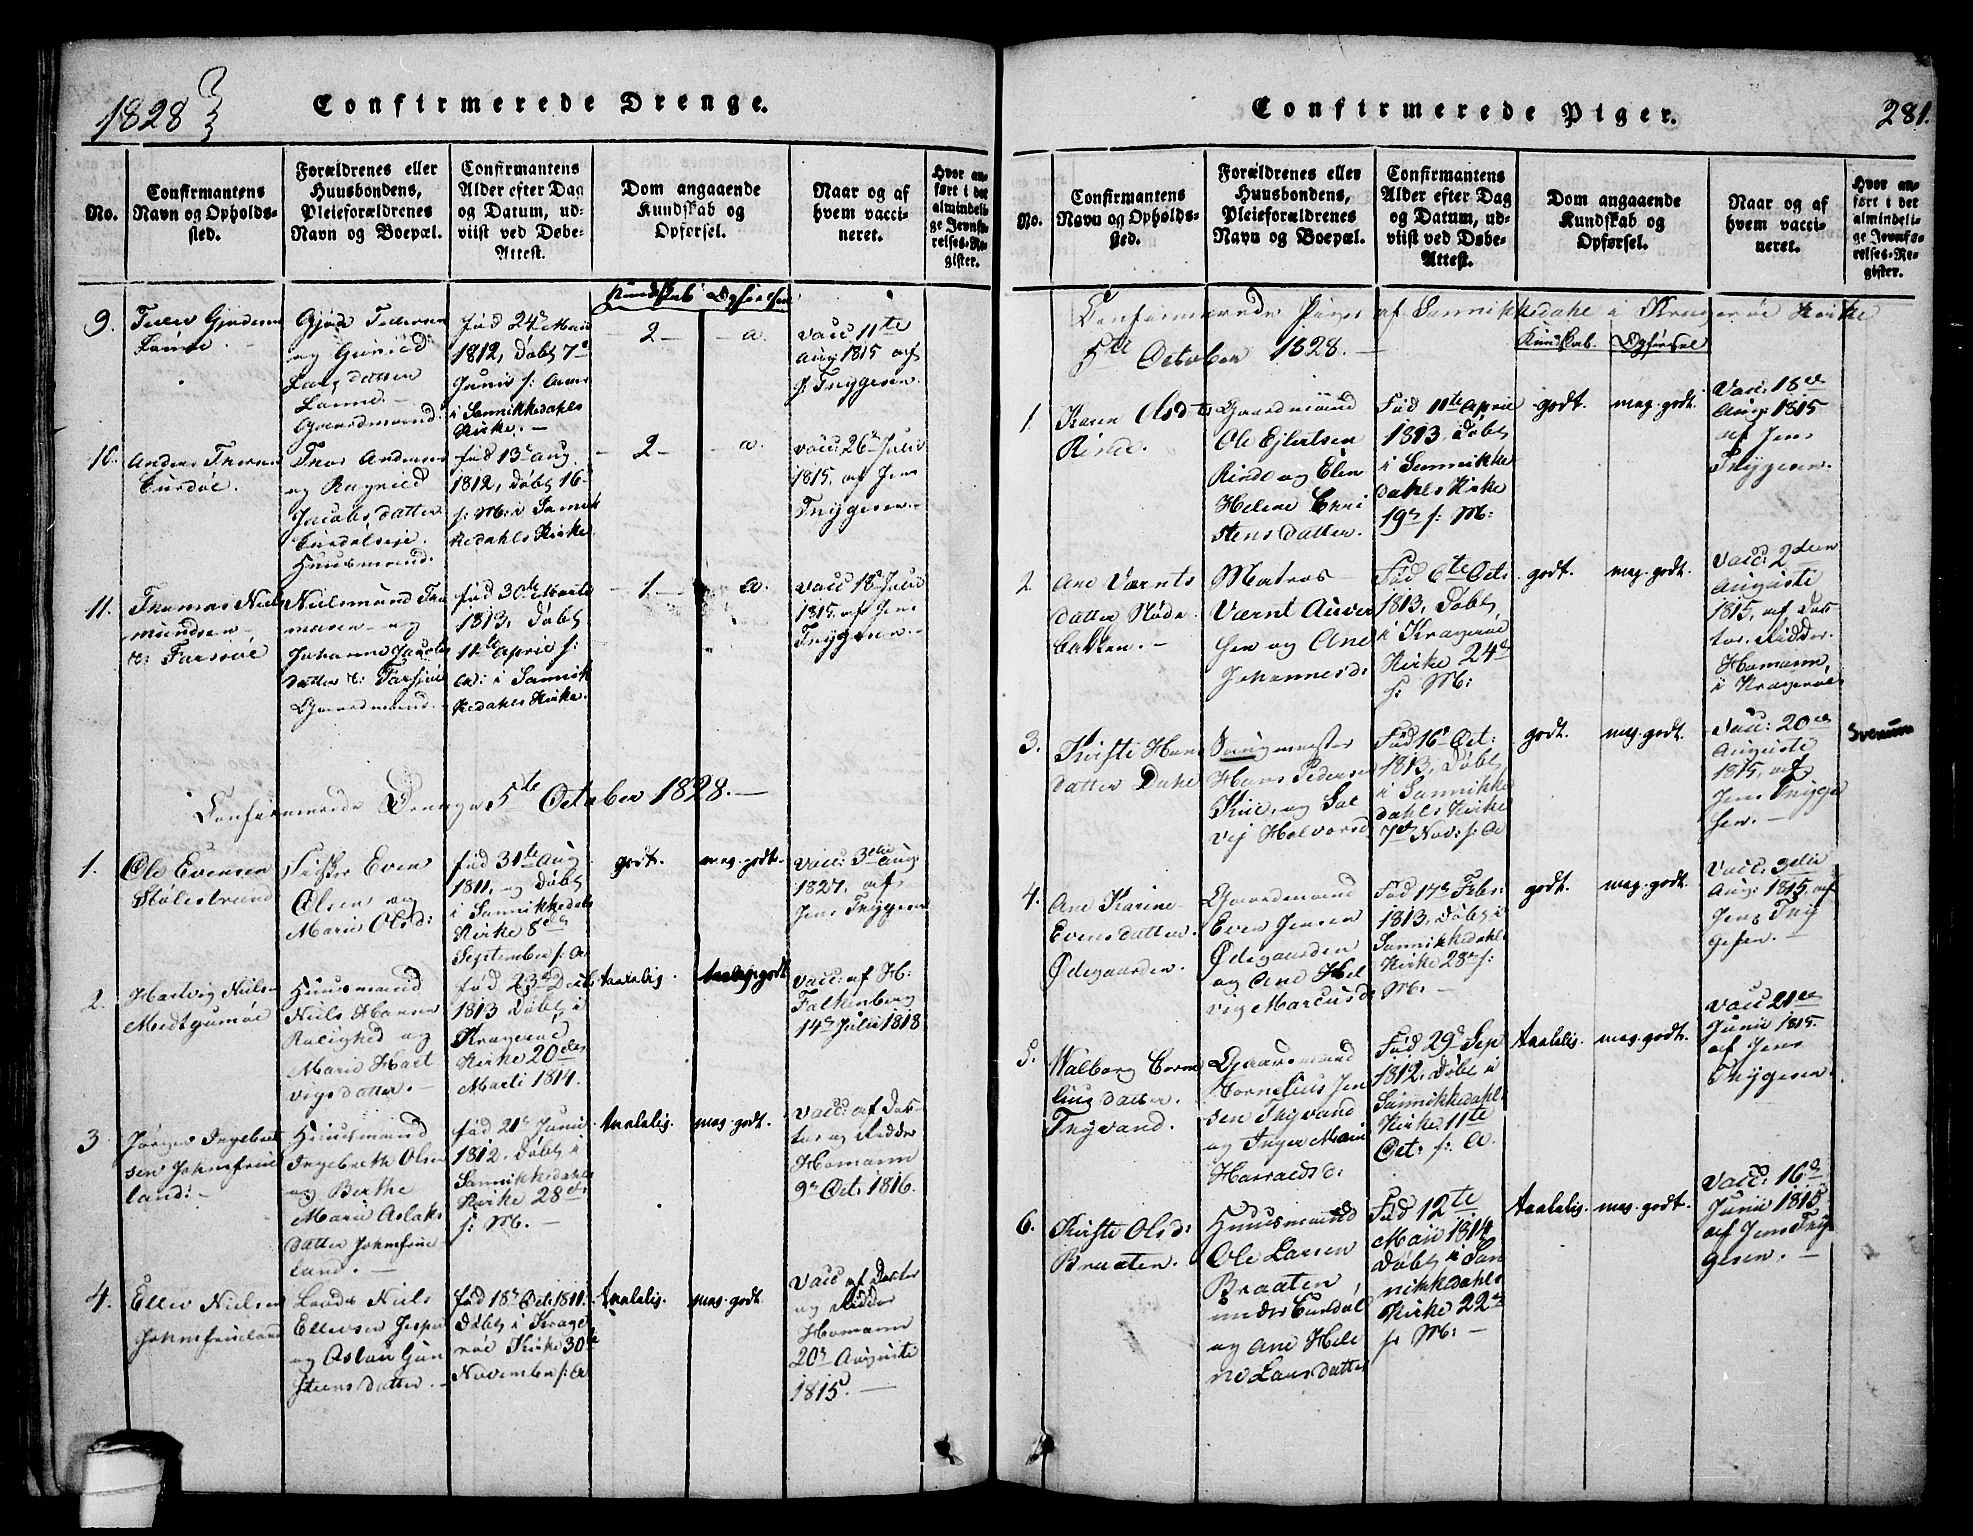 1828
Confirmerede Drenge.
No.
Confirmantens
Navn og Opholds-
sted.
Forældrenes eller
Huusbondens,
Pleieforældrenes
Navn og Boepæl.
Confirmantens
Alder efter Dag
og Datum, ud-
viist ved Døbe-
Attest.
Dom angaaende
Kundskab og
Opførsel.
Naar og af
hvem vacci-
neret.
Hvor an-
ført i det
almindeli-
ge Jevnfø-
relses-Re-
gister.
Kundskab Opførsel
9.
og Gunild
Lars datter
Gaardmand.
født 24de Maii
1812, Døbt 7de
Junii f: Anm
i Sannikedahls
Kirke.
2
a.
vacc 11te
Aug 1815 af
J: Trygesen.
10.
Anders Thorsen
Thor Andersen
og Ragnild
Jacobs datter
Huusmand.
fød 13de Aug
1812, Døbt 16de
f: M: i Sannik
kedahls Kirke
2
a.
vacc: 26de Julii
1815. af Jens
Trygesen.
11.
Thomas Niels
mundsen
Farsiøe
Nielsmund Tho
masen og
Johanne Jacobs
datter Farsiøe
Gaardmand.
fød 30te Marti
1813, Døbt
11te April f:
A: i Sannik
kedahls Kirke
1
a.
vacc 18de Julii
1815. af Jens
Trygesen
Confirmerede Drenge 5te October 1828.
1.
Ole Evensen
Stølestrand
Fisker Even
Olsen og
Marie Olsd:
fød 31te Aug
1811, og Døbt
i Sannikkedals
Kirke 8de
September f: A
godt.
meg. godt.
vacc: 3die Aug.
1827. af
Jens Tryggesen
2.
Hartvig Nielsen
Huusmand
Niels Hansen
Rolighed og
Marie Hart
vigsdatter.
fød 23de Decb
1813 Døbt i
Kragerøe
Kirke 20de
Marti 1814.
Taalelig.
vacc: af H:
Falkenberg
14de Julii 1818
3
Jørgen Ingebret
sen Johnsfrue
land:
Huusmand
Ingebreth Olsen
og Berthe
Marie Aslaks
datter Johnsfrue
land.
fød 21de Junii
1812. Døbt i
Sannikkedahls
Kirke 28de
f: M.
Taalelig.
meg. godt.
vacc: af Doc-
tor og Ridder
Homann
9de Oct: 1816.
4.
Ellev Nielsen
Johnsfrueland
Lods Niels
Ellevsen Jesper
og Aslau Gun
steens datter.
fød 18de Oct: 1811.
Døbt i Krage
røe Kirke 30te
November f: A
Taalelig.
meg. godt
vacc af Doctor
og Ridder
Homann
20de Auguste
1815.
Confirmerede Piger.
281.
No.
Confirmantens
Navn og Opholds-
sted.
Forældrenes eller
Huusbondens,
Pleieforældrenes
Navn og Boepæl.
Confirmantens
Alder efter Dag
og Datum, ud-
viist ved Døbe-
Attest.
Dom angaaende
Kundskab og
Opførsel.
Naar og af
hvem vacci-
neret.
Hvor an-
ført i det
almindeli-
ge Jevnfø-
relses-Re-
gister.
Confirmerede Piger af Sannikkedahl i Kragerøe Kirke
5te October 1828.
Kundskab. Opførsel
1.
Karen Olsd
Rinde.
Gaardmand
Ole Ejlertsen
Rinde og Elen
Helene Chri
stens datter.
Fød 11te April
1813, Døbt
i Sannikke
dahls Kirke
19de f: M:
godt.
meg. godt.
Vacc: 18de
Aug: 1815
af Jens
Trygesen.
2
Ane Værnts
datter Røde
bakken.
Matros
Værnt Anver
sen og Ane
Johannesd:
Fød 6te Oct:
1813, Døbt,
i Kragerøe
Kirke 24de
f: M:
godt.
meg. godt.
Vacc: 2den
Auguste
1815, af Doc
tor. Ridder.
Homann,
i Kragerøe
3.
Kirsti Hans
datter Dahl
Hans Pedersen
og Sol
vej Halvorsd
Fød 16de Oct:
1813, Døbt
i Sannikke
dahls Kirke
7de Nov: f: A
godt.
meg. godt.
Vacc: 20de
Auguste
1815, af
Jens Trygge
sen.
Svenum
4.
Ane Karine
Evensdatter.
Ødegaarden.
Gaardmand
Even Jensen
Ødegaarden
og Ane Hel
vig Marcusd
Fød 17de Febr:
1813, Døbt i
Sannikkedahls
Kirke 28de f:
M:
godt.
meg. godt.
Vacc: 3die
Aug: 1815. af
Jens Try
gesen.
5.
Walborg Corne
lius datter.
Trysvand.
Gaardmand
Cornelius Jen
sen Trysvand
og Inger Marie
Haralds d:
Fød 29de Sep
1812. Døbt i
Sannikkedahls
Kirke 11te
Oct: f: A.
Taalelig.
meg. godt.
Vacc 21de
Junii 1815.
af Jens
Trygesen.
6.
Kirste Olsd:
Braaten.
Huusmand
Ole Larsen
Braaten,
under
og Ane Hele
ne Larsdatter
Fød 12te
Maii 1814
Døbt i San
nikkedahls
Kirke 22de
f: M:
Taalelig.
meg. godt.
Vacc: 16de
Junii 1815
af Jens Try
gesen.